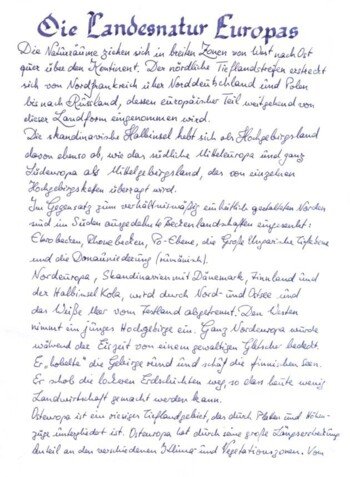 Die Landesnatur Europas
Die Naturräume ziehen sich in breiten Zonen von West nach Ost
quer über den Kontinent. Der nördliche Tieflandstreifen erstreckt
sich von Nordfrankreich über Norddeutschland und Polen
bis nach Rußland, dessen europäischer Teil weitgehend von
dieser Landform eingenommen wird.
Die skandinavische Halbinsel hebt sich als Hochgebirgsland
davon ebenso ab, wie das südliche Mitteleuropa und ganz
Südeuropa als Mittelgebirgsland, das von einzelnen
Hochgebirgsketten überragt wird.
Im Gegensatz zum verhältnismäßig einheitlich gestalteten Norden
sind im Süden ausgedehnte Beckenlandschaften eingesenkt:
Ebrobecken, Rhonebecken, Po-Ebene, die Große Ungarische Tiefebene
und die Donauniederung (rumänisch).
Nordeuropa, Skandinavien mit Dänemark, Finnland und
der Halbinsel Kola, wird durch Nord- und Ostsee und
das Weiße Meer vom Festland abgetrennt. Den Westen
nimmt ein junges Hochgebirge ein. Ganz Nordeuropa wurde
während der Eiszeit von einem gewaltigen Gletscher bedeckt.
Er „hobelte" die Gebirge rund und schuf die finnischen Seen.
Er schob die lockeren Erdschichten weg, so dass heute wenig
Landwirtschaft gemacht werden kann.
Osteuropa ist ein riesiges Tieflandgebiet, das durch Platten und Höhen-
züge untergliedert ist. Osteuropa hat durch seine große Längserstreckung
Anteil an den verschiedenen Klima- und Vegetationszonen. Vom